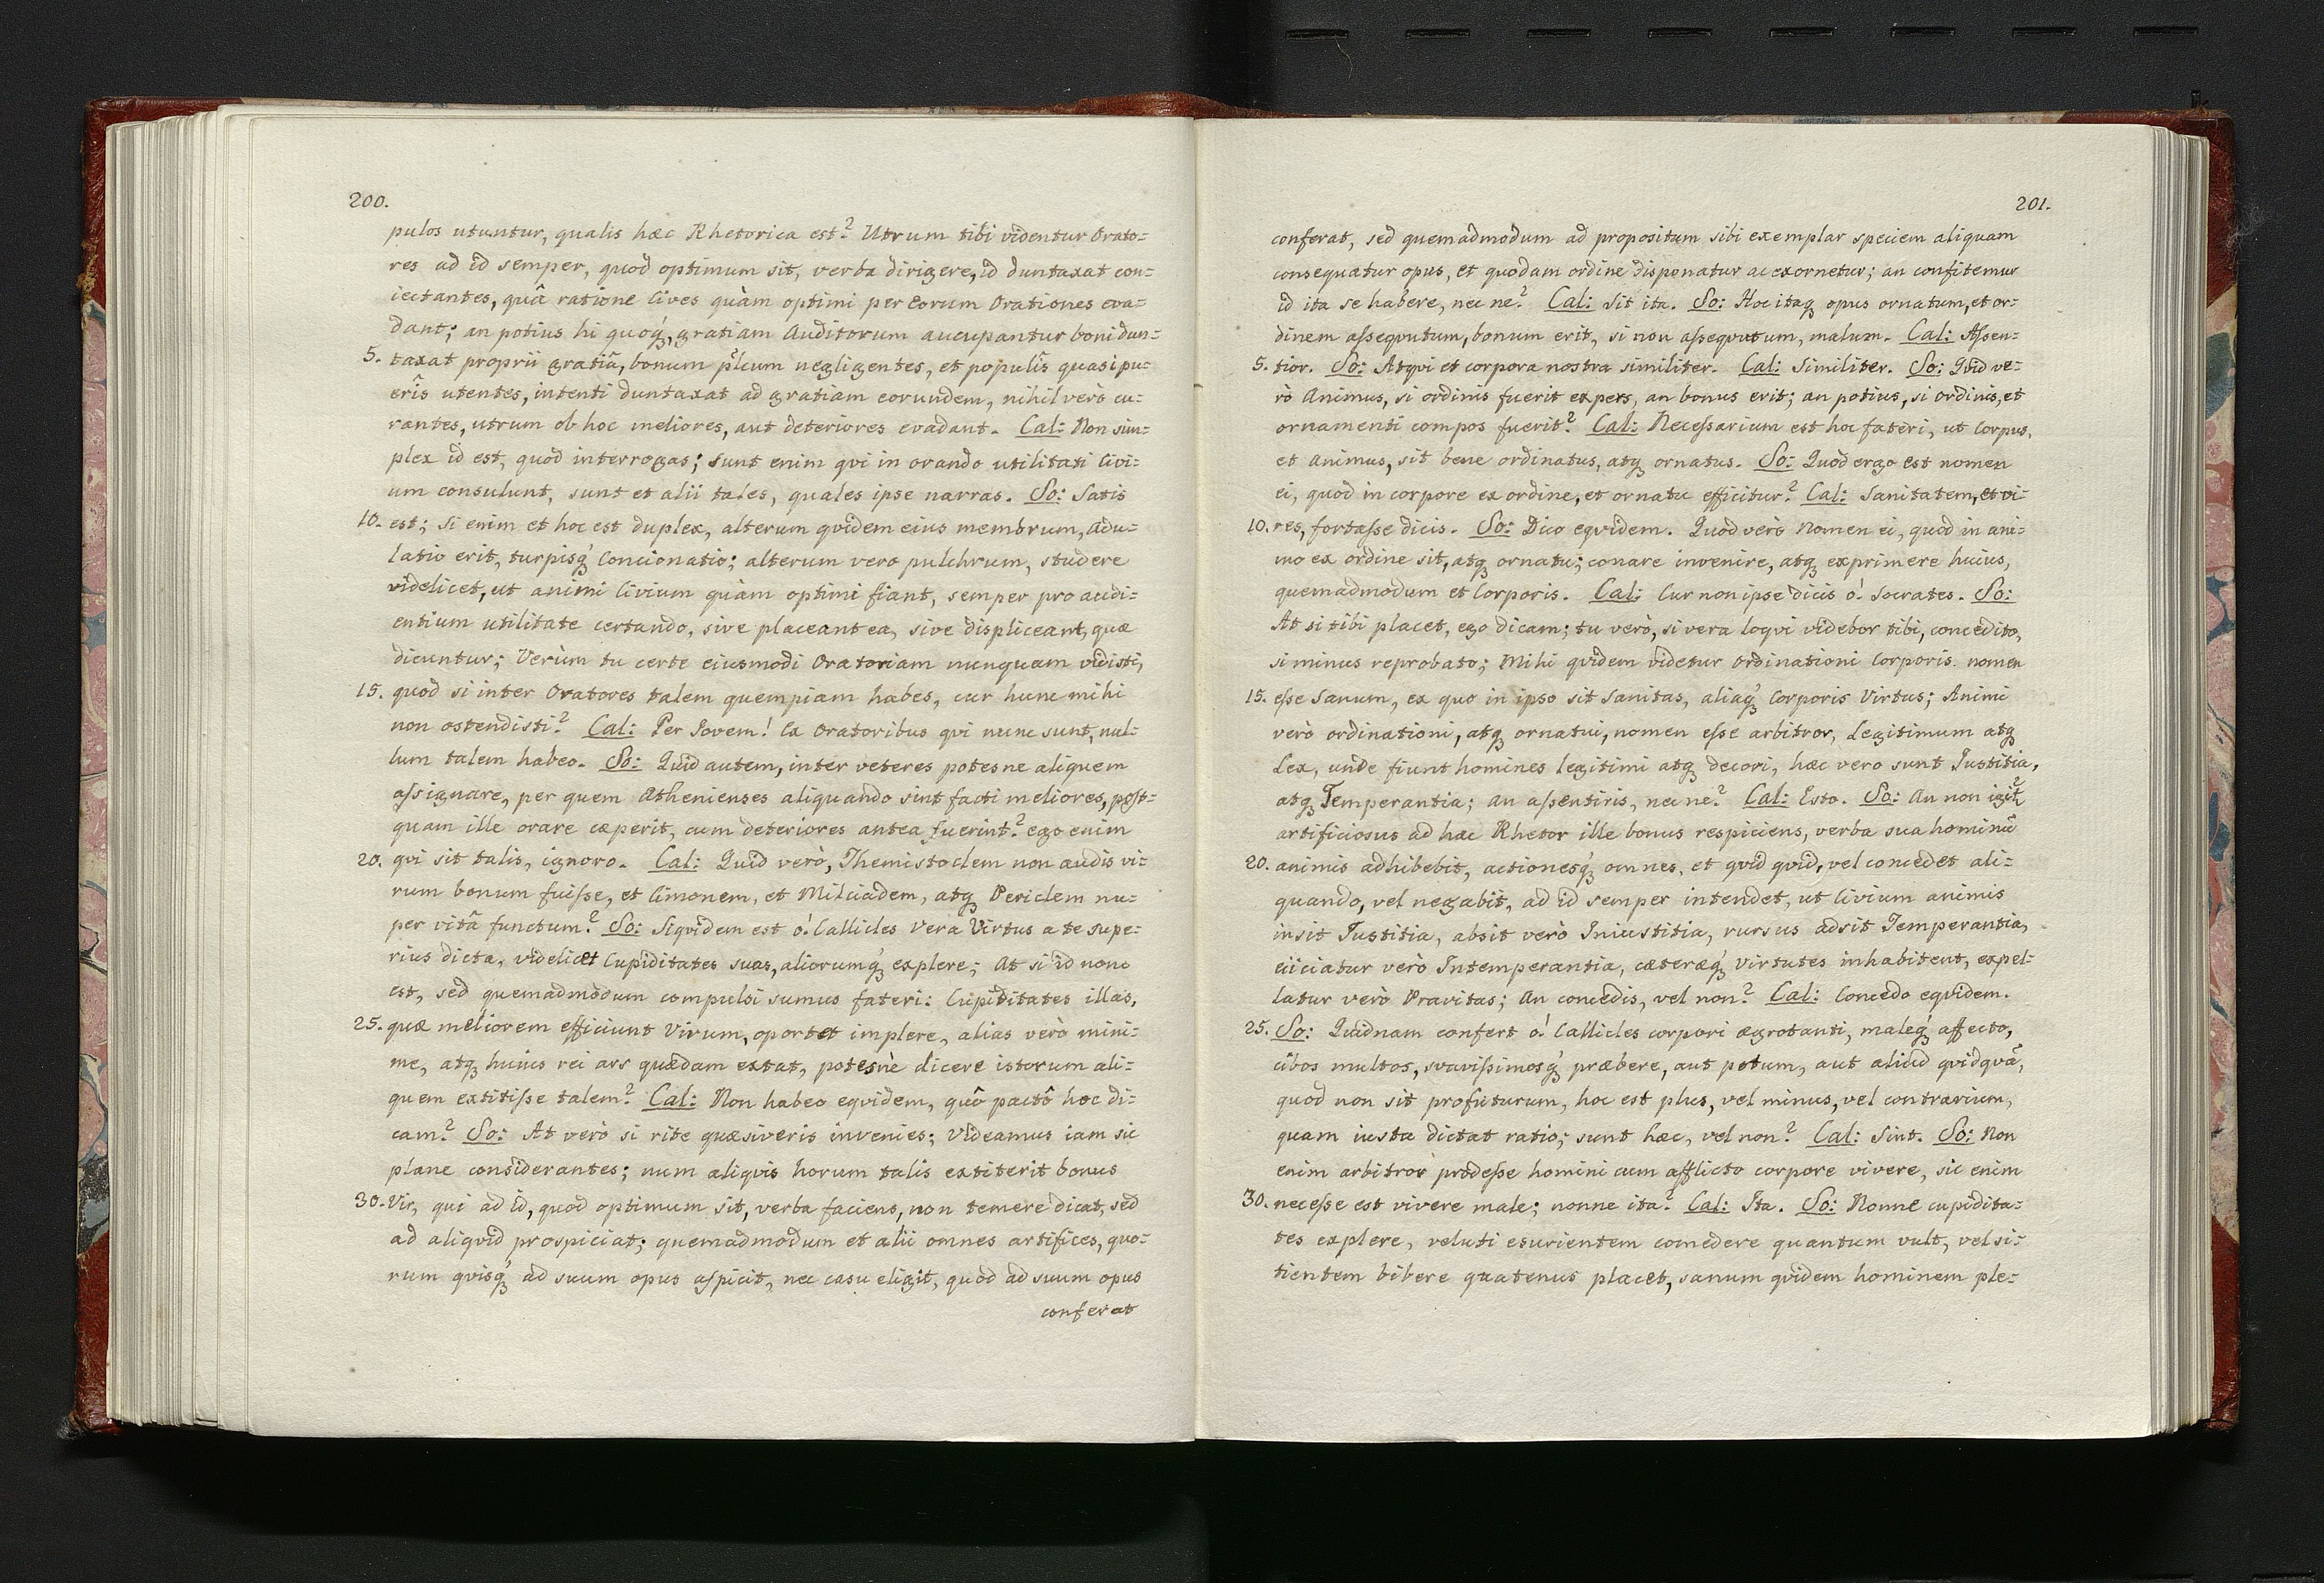 200.
pulos utuntur, qualis hæc Rhetorica est? Utrum tibi videntur Orato=
res ad id semper, quod optimum sit, verba dirigere, id duntaxat con=
iectantes, quâ ratione Cives quàm optimi per eorum Orationes eva=
dant; an potius hi quoqꝫ, gratiam Auditorum aucupantur boni dun=
5. taxat proprii gratiâ, bonum pĺcum negligentes, et populis quasi pu=
eris utentes, intenti duntaxat ad gratiam eorundem, nihil verò cu=
rantes, utrum ob hoc meliores, aut deteriores evadant. Cal: Non sim=
plex id est, quod interrogas; sunt enim qvi in orando utilitati Civi=
um consulunt, sunt et alii tales, quales ipse narras. So: Satis
10. est; si enim et hoc est duplex, alterum qvidem eius membrum, adu=
latio erit, turpisqꝫ Concionatio; alterum vero pulchrum, studere
videlicet, ut animi Civium quàm optimi fiant, semper pro audi=
entium utilitate certando, sive placeant ea, sive displiceant, quæ
dicuntur; Verùm tu certe eiusmodi Oratoriam nunquam vidisti,
15. quod si inter Oratores talem quempiam habes, cur hunc mihi
non ostendisti? Cal: Per Jovem! Ex Oratoribus qvi nunc sunt, nul=
lum talem habeo. So: Quid autem, inter veteres potesne aliquem
assignare, per quem Athenienses aliquando sint facti meliores, post=
quam ille orare cæperit, cum deteriores antea fuerint? ego enim
20. qvi sit talis, ignoro. Cal: Quid verò, Themistoclem non audis vi=
rum bonum fuisse, et Cimonem, et Milciadem, atqꝫ Periclem nu=
per vitâ functum? So: Siqvidem est ó! Callicles vera Virtus a te supe=
rius dicta, videlicet Cupiditates suas, aliorumqꝫ explere; At si id non
est, sed quemadmodum compulsi sumus fateri: Cupiditates illas,
25. quæ meliorem efficiunt Virum, oportet implere, alias verò mini=
me, atqꝫ huius rei ars quædam extat, potesnè dicere istorum ali=
quem extitisse talem? Cal: Non habeo eqvidem, quô pactô hoc di=
cam? So: At verò si rite quæsiveris invenies; Videamus iam sic
plane considerantes; num aliqvis horum talis extiterit bonus
30. Vir, qui ad id, quod optimum sit, verba faciens, non temere dicat, sed
ad aliqvid prospiciat; quemadmodum et alii omnes artifices, quo=
rum qvisqꝫ ad suum opus aspicit, nec casu eligit, quod ad suum opus
conferat
201.
conferat, sed quemadmodum ad propositum sibi exemplar speciem aliquam
consequatur opus, et quodam ordine disponatur ac exornetur; an confitemur
id ita se habere, nec ne? Cal: Sit ita. So: Hoc itaqꝫ opus ornatum, et or=
dinem asseqvutum, bonum erit, si non asseqvutum, malum. Cal: Assen=
5. tior. So: Atqvi et corpora nostra similiter. Cal: Similiter. So: Quid ve=
rò Animus, si ordinis fuerit expers, an bonus erit; an potius, si ordinis, et
ornamenti compos fuerit? Cal: Necessarium est hoc fateri, ut Corpus,
et Animus, sit bene ordinatus, atqꝫ ornatus. So: Quod ergo est nomen
ei, quod in corpore ex ordine, et ornatu efficitur? Cal: Sanitatem, et vi=
10. res, fortasse dicis. So: Dico eqvidem. Quod verò nomen ei, quod in ani=
mo ex ordine sit, atqꝫ ornatu; conare invenire, atqꝫ exprimere huius,
quemadmodum et Corporis. Cal: Cur non ipse dicis ó! Socrates. So:
At si tibi placet, ego dicam; tu verò, si vera loqvi videbor tibi, concedito,
si minus reprobato; Mihi qvidem videtur Ordinationi Corporis nomen
15. esse Sanum, ex quo in ipso sit Sanitas, aliaqꝫ Corporis Virtus; Animi
verò ordinationi, atqꝫ ornatui, nomen esse arbitror, Legitimum atqꝫ
Lex, unde fiunt homines legitimi atqꝫ decori, hæc vero sunt Justitia,
atqꝫ Temperantia; an assentiris, nec ne? Cal: Esto. So: An non igitr̃
artificiosus ad hæc Rhetor ille bonus respiciens, verba sua hominũ
20. animis adhibebit, actionesqꝫ omnes, et qvid qvid, vel concedet ali=
quando, vel negabit, ad id semper intendet, ut Civium animis
insit Justitia, absit verò Iniustitia, rursus adsit Temperantia,
eiiciatur verò Intemperantia, cæteræqꝫ virtutes inhabitent, expel=
latur verò Pravitas; an concedis, vel non? Cal: Concedo eqvidem.
25. So: Quidnam confert ó! Callicles corpori ægrotanti, maleqꝫ affecto,
cibos multos, svavissimosqꝫ præbere, aut potum, aut aliud qvidquã,
quod non sit profuturum, hoc est plus, vel minus, vel contrarium,
quam iusta dictat ratio; sunt hæc, vel non? Cal: Sint. So: Non
enim arbitror prodesse homini cum afflicto corpore vivere, sic enim
30. necesse est vivere male; nonne ita? Cal: Ita. So: Nonne cupidita=
tes explere, veluti esurientem comedere quantum vult, vel si=
tientem bibere quatenus placet, sanum qvidem hominem ple=